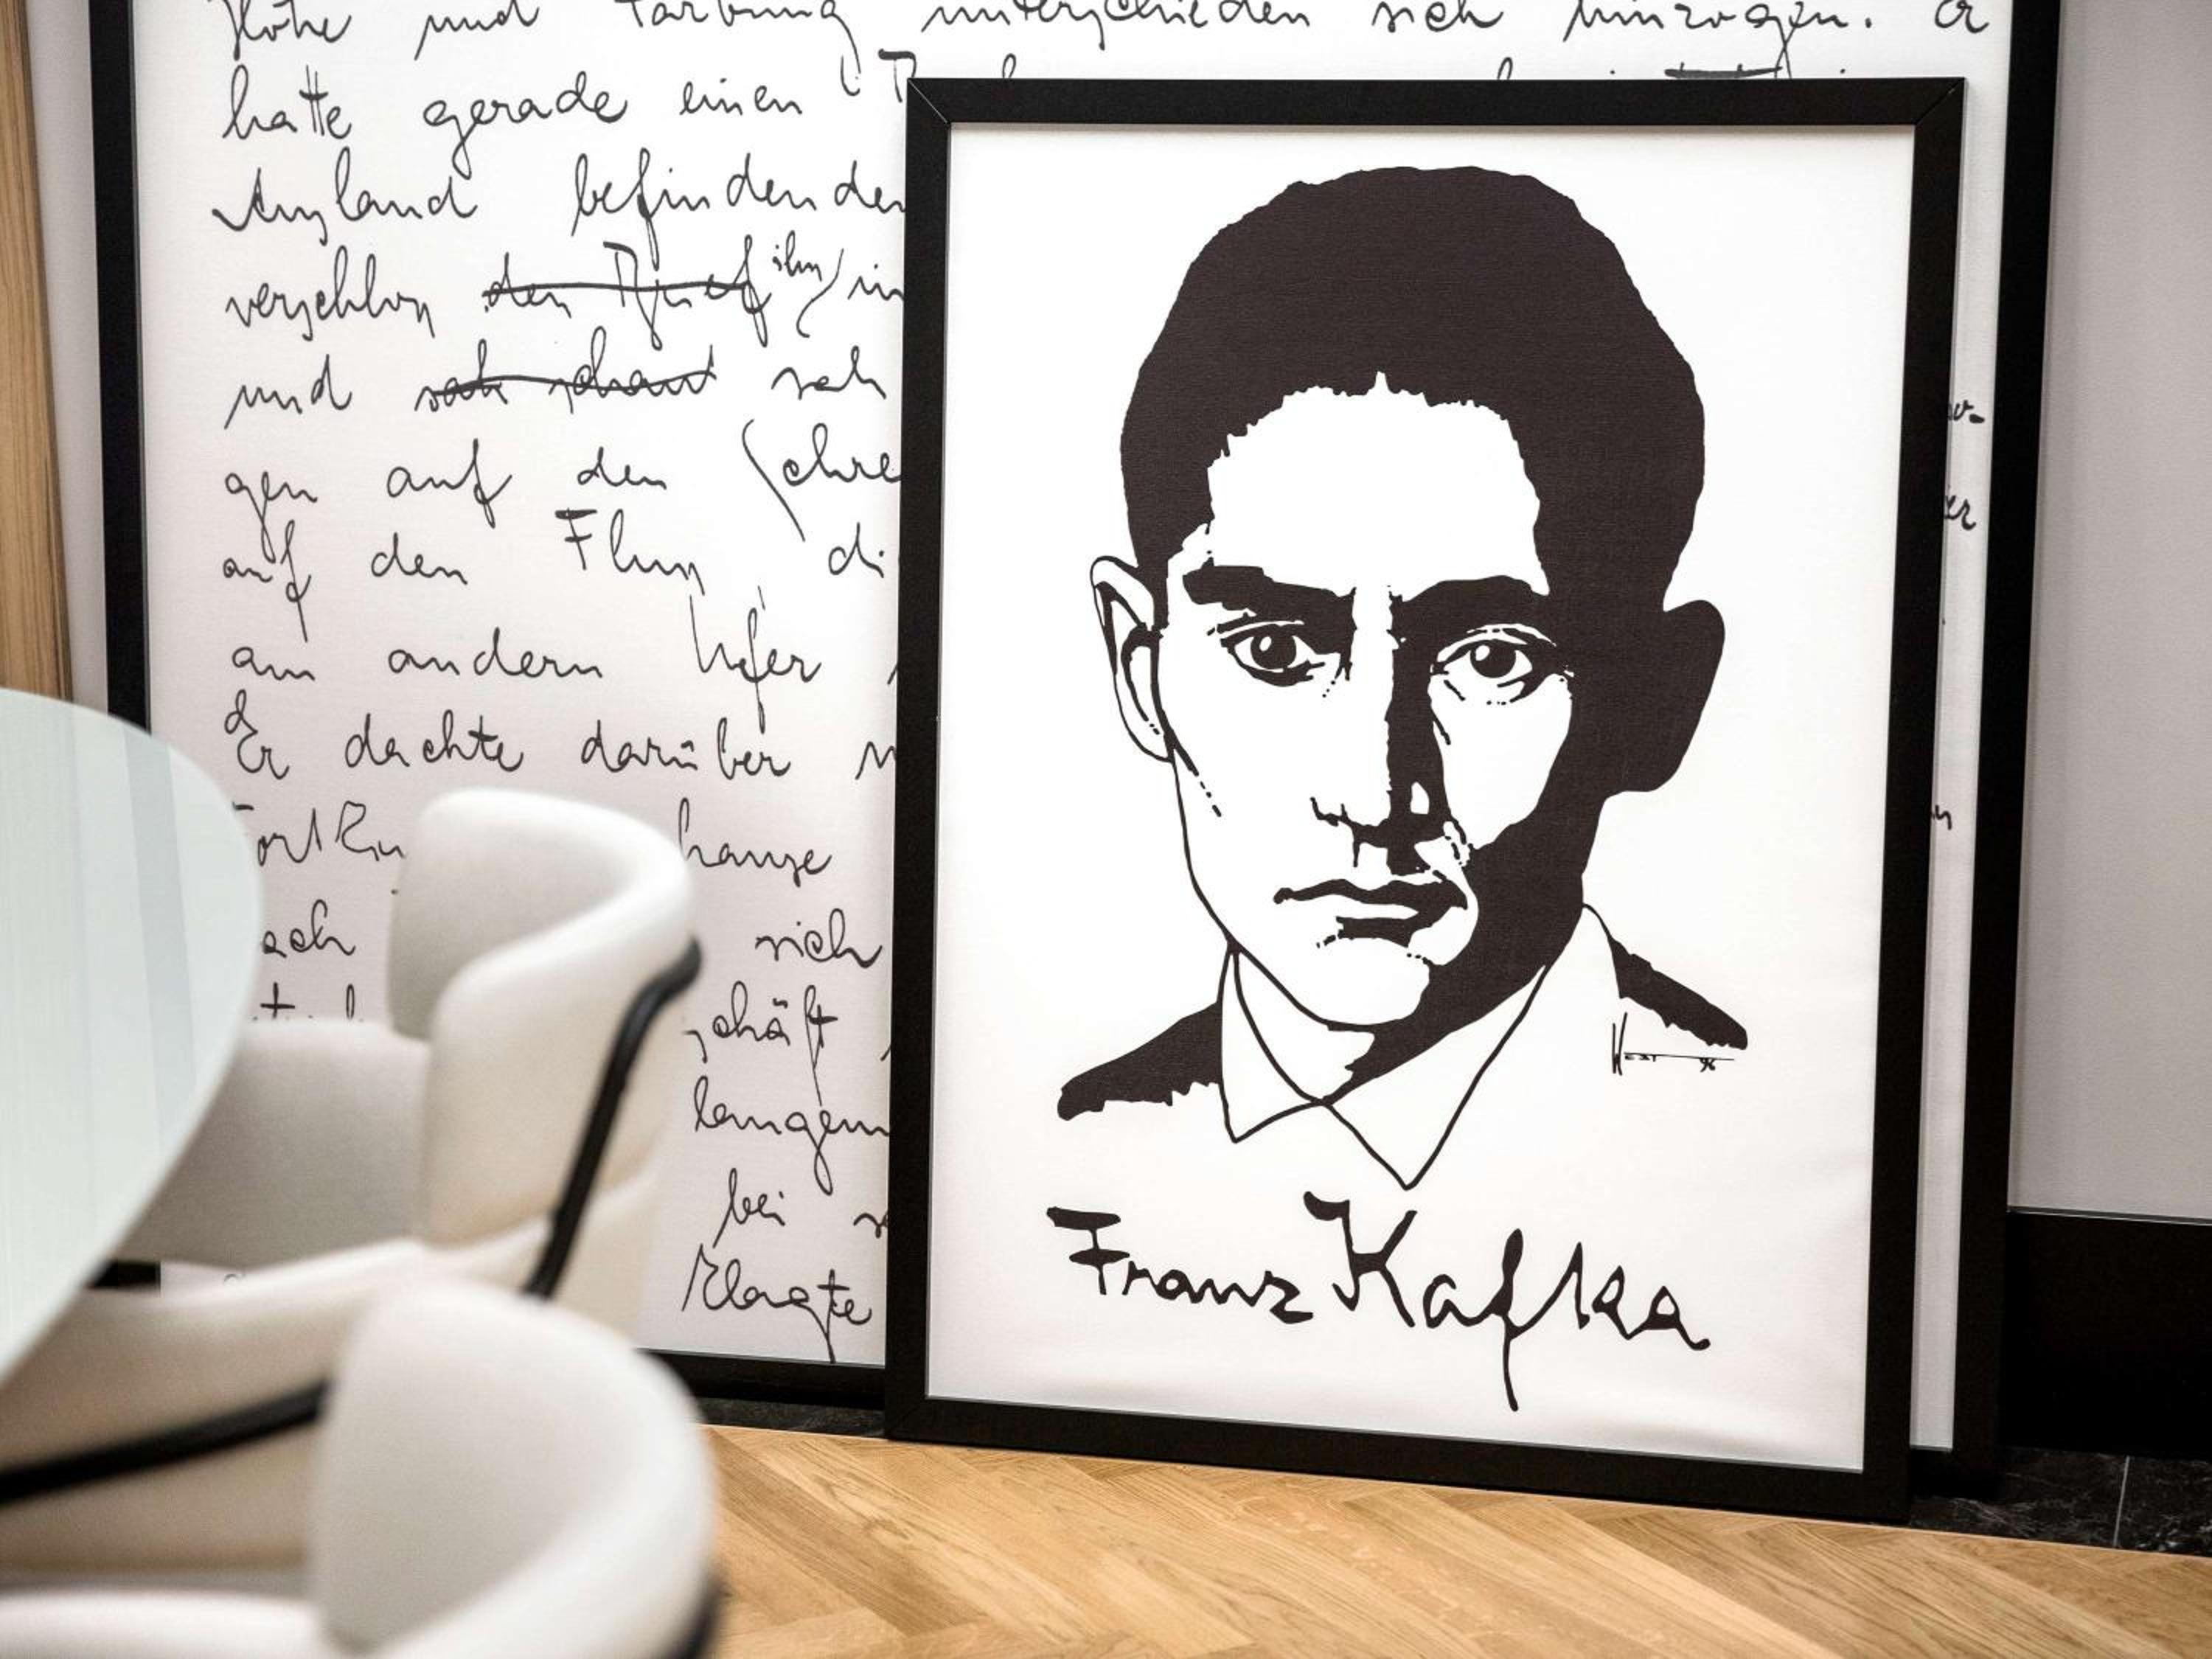 Höhe und Färbung unterschieden sich hinzogen. Er
hatte gerade einen
Ausland befindenden
verschloss den Brief ihn in
und sah schaut sah
gen auf den Schre
auf den Fluss, di
am andern Ufer
Er dachte darüber
hause
sich
schäft
langem
bei
klagte
Franz Kafka
West 96